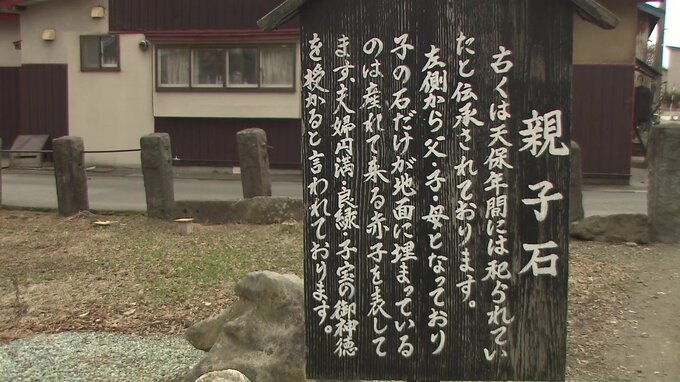 親子石
古くは天保年間には祀られてい
たと伝承されております。
左側から父・子・母となっており
子の石だけが地面に埋まっている
のは産れて来る赤子を表して
ます。夫婦円満・良縁・子宝の御神徳
を授かると言われております。